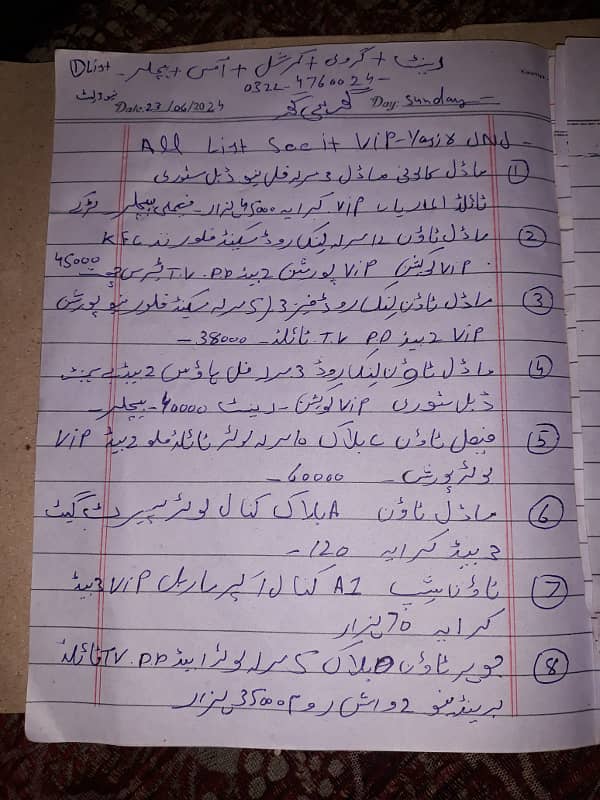 ① List رینٹ + گروی + کمرشل + آفس + بیچلر -
0322-4760024-
نیو لسٹ Date: 23/06/2024 گھر ہی گھر Day: Sunday
All List See it ViP-Yasir JNJ -
① ماڈل کالونی ماڈل 3 مرلہ فل نیو ڈبل سٹوری
ٹائلڈ الماریاں ViP کرایہ 45000 ہزار - فیملی بیچلر
② ماڈل ٹاؤن 12 مرلہ لنک روڈ سیکنڈ فلور نزد KFC
ViP لوکیشن ViP پورشن 2 بیڈ TV. DD ٹیرس 45000
③ ماڈل ٹاؤن لنک روڈ 3.5 مرلہ سیکنڈ فلور نیو پورشن
ViP 2 بیڈ TV DD ٹائلڈ - 38000 -
④ ماڈل ٹاؤن لنک روڈ 3 مرلہ فل ہاؤس 2 بیڈ بیسمنٹ
ڈبل سٹوری ViP لوکیشن - رینٹ 40000 - بیچلر -
⑤ فیصل ٹاؤن C بلاک 10 مرلہ لوئر ٹائلڈ فلور 2 بیڈ ViP
لوئر پورشن - 60000 -
⑥ ماڈل ٹاؤن A بلاک کنال لوئر سیپریٹ گیٹ
3 بیڈ کرایہ 120 -
⑦ ٹاؤن شپ A1 کنال اپر ماربل ViP 3 بیڈ
کرایہ 70 ہزار
⑧ جوہر ٹاؤن D بلاک 5 مرلہ لوئر 1 بیڈ TV. DD ٹائلڈ
برینڈ نیو 2 واش روم 35000 ہزار